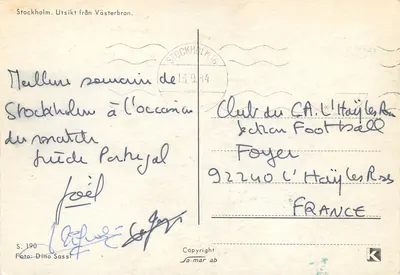 Stockholm. Utsikt från Västerbron.
STOCKHOLM
Meilleur souvenir de
Stockholm à l'occasion
du match
Suède Portugal
Joël
Club du CA. L'Haÿ les Roses
Section Football
Foyer
92240 L'Haÿ les Roses
FRANCE
S. 190
Foto: Dino Sassi
Copyright
Sa-mar ab
K